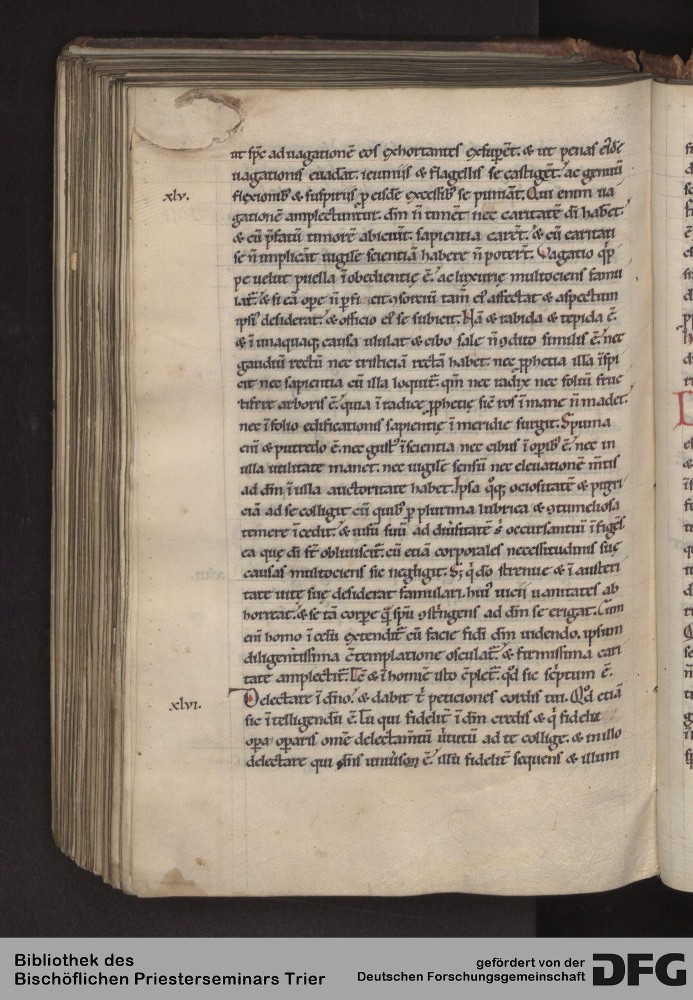 ut sp̄c ad uagationē eos exhortantes exsuꝑēt. & ut penas
uagationis euadāt. ieiuniis & flagellis se castigēt. ac genuū
xlv.
flexionib; & suspiriis ꝑ eisdē excessib; se puniāt. Qui enim ua
gationē amplectuntur. dm̄ n̄ timēt nec caritatē dī habēt.
& cū p̄fatū timorē abiciūt. sapientia carēt. & cū caritati
se n̄ implicāt uigilē scientiā habere n̄ poterīt. Vagatio q̄p
pe uelut puella īobedientię ē. ac luxurię multociens famu
lat̄. & si eā ope n̄ ꝑficit ꝯsorciū tam̄ ei᷒ affectat & aspectum
ipsi᷒ desiderat. & officio ei᷒ se subicit. Nā & rabida & tepida ē.
& ī unaquaq; causa ululat & cibo sale n̄ ꝯdito similis ē. nec
gaudiū rectū nec tristiciā rectā habet. nec ꝓphetia illā īspi
cit nec sapientia cū illa loquit̄. qm̄ nec radix nec foliū fruc
tiferę arboris ē. quia ī radice ꝓphetię sic̄ ros ī mane n̄ madet.
nec ī folio edificationis sapientię ī meridie surgit. Spuma
eni᷒ & putredo ē. nec gust᷒ ī scientia nec cibus ī oꝑib; ē. nec in
ulla utilitate manet. nec uigilē sensū nec eleuationē m̄tis
ad dm̄ ī ulla auctoritate habet. Ipsa q̊q; ociositatē & pigri
ciā ad se colligit cū quib; ꝑ plurima lubrica & ꝯtumeliosa
temere īcedit. & uisū suū ad diūsitatē
ea quę dī st̄ obliuiscit̄. cū etiā corporales necessitudinis suę
causas multociens sic negligit. S; q̇ dō strenue & ī austeri
tate uitę suę desiderat famulari. hui᷒ uicii uanitates ab
horreat. & se tā corpe q̄ sp̄u ꝯstringens ad dm̄ se erigat. Cum
enī homo ī celū extendit̄ cū facie fidei dm̄ uidendo. ipsum
diligentissima ꝯtemplatione osculat̄. & firmissima cari
tate amplectit̄. & ī homine isto ꝯplet̄. qd̄ sic sc̄ptum ē.
xlvi.
Delectare ī dn̄o. & dabit t̄ peticiones cordis tui. Qd̄ etiā
sic ītelligendū ē. Tu qui fidelit̄ ī dm̄ credis & q̇ fidelia
opa oꝑaris omē delectam̄tū uirtutū ad te collige. & in illo
delectare qui om̄is uniuersor̄ ē. illū fidelit̄ sequens & illum
Bibliothek des
Bischöflichen Priesterseminars Trier
gefördert von der
Deutschen Forschungsgemeinschaft
DFG